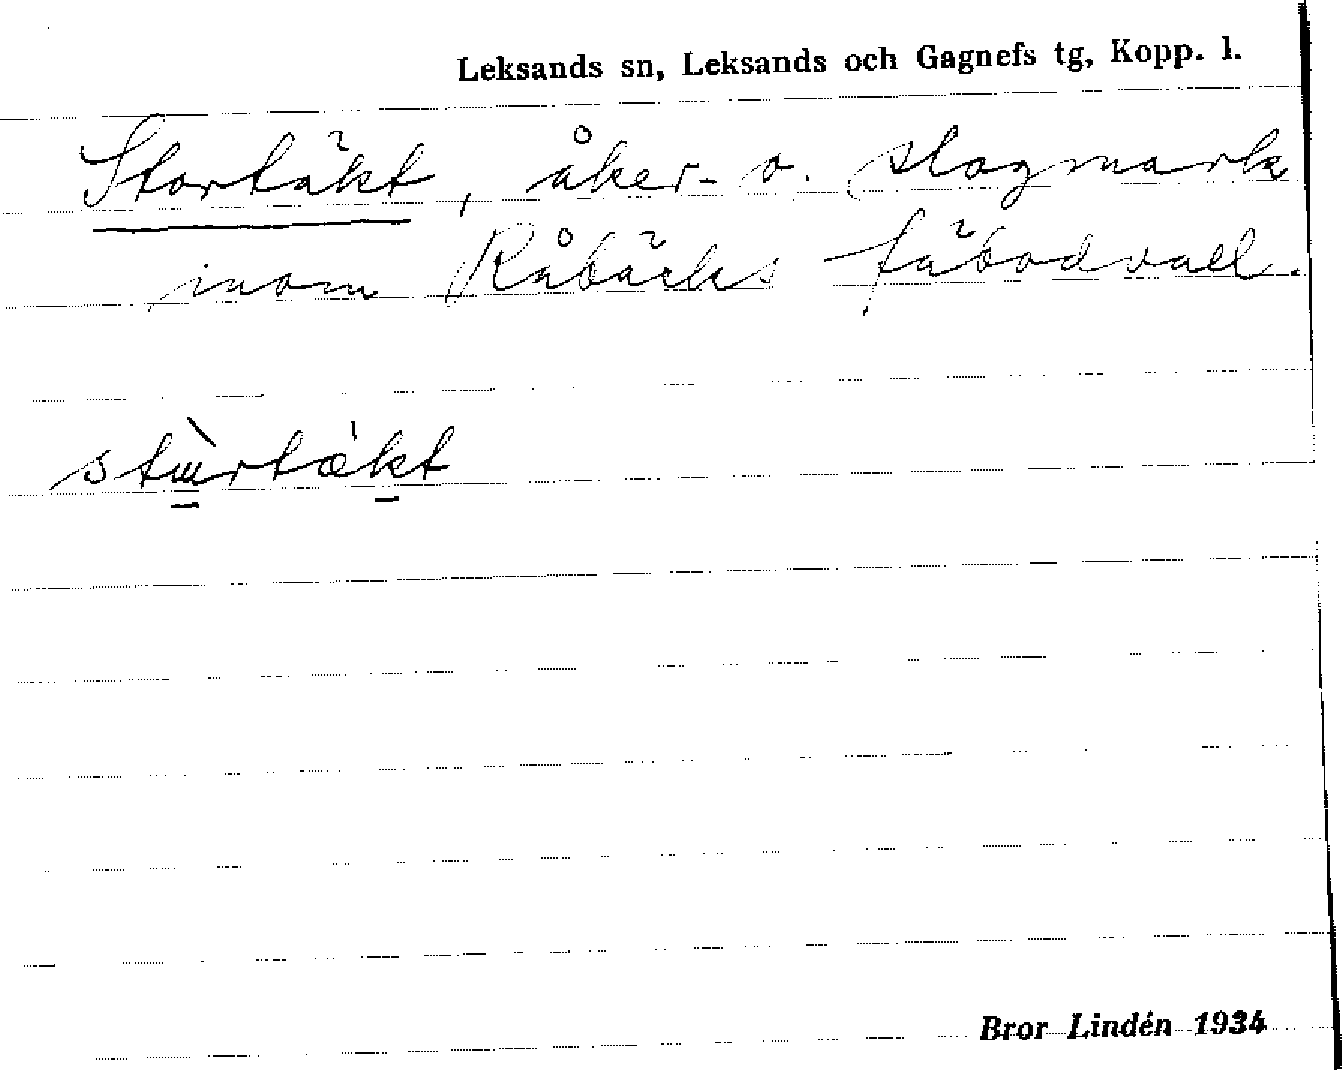 Leksands sn, Leksands och Gagnefs tg, Kopp. l.
Stortäkt, åker- o. slogmark
inom Råbäcks fäbodvall.
stɯ̀rtæ̀kt
Bror Lindén 1934